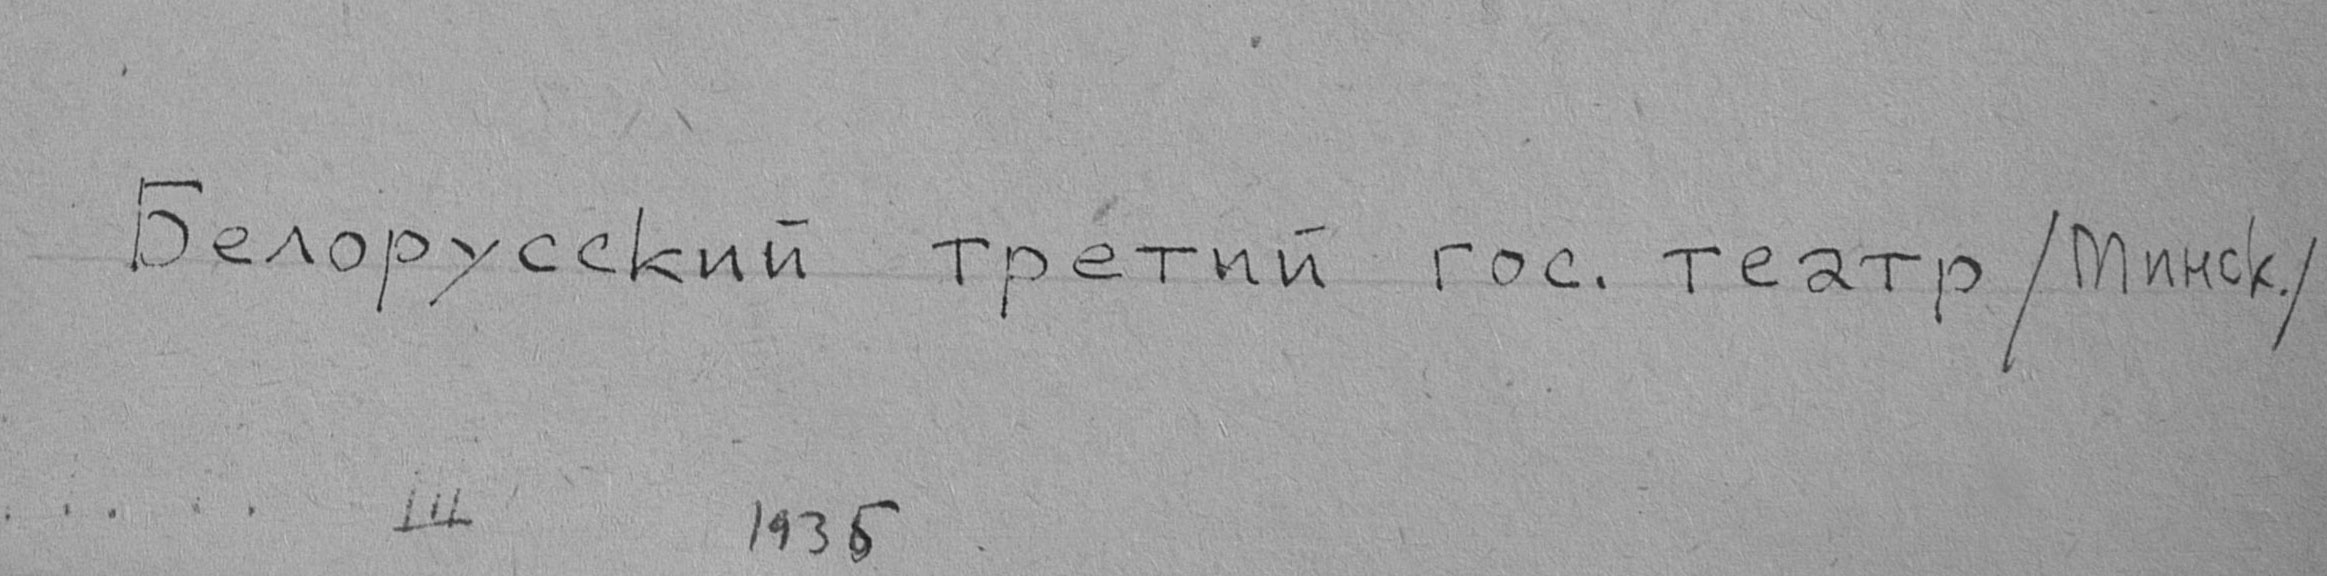 Белорусский третий гос. театр /Минск./
III 1935